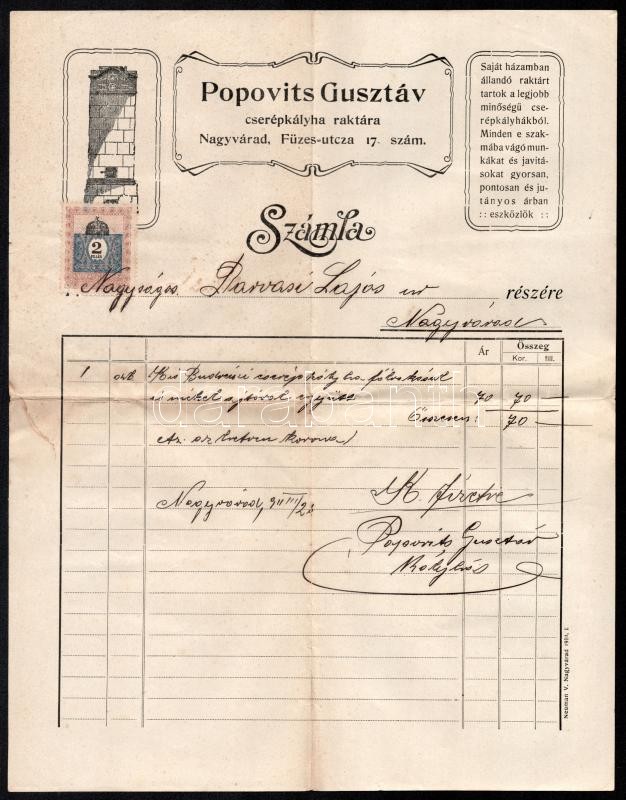 Popovits Gusztáv
cserépkályha raktára
Nagyvárad, Füzes-utcza 17. szám.
Saját házamban
állandó raktárt
tartok a legjobb
minőségű cse-
répkályhákból.
Minden e szak-
mába vágó mun-
kákat és javitá-
sokat gyorsan,
pontosan és ju-
tányos árban
:: eszközlök ::
2
Számla
Nagyságos Darvasi Lajos úr részére
Nagyvárad
Ár Összeg
Kor. fill.
1 drb cserépkályha
ajtóval együtt 70 70
Összesen: 70
Az az hetven korona
Nagyvárad,
Fizetve
Popovits Gusztáv
Kályhás
Neuman V. Nagyvárad
darabanth